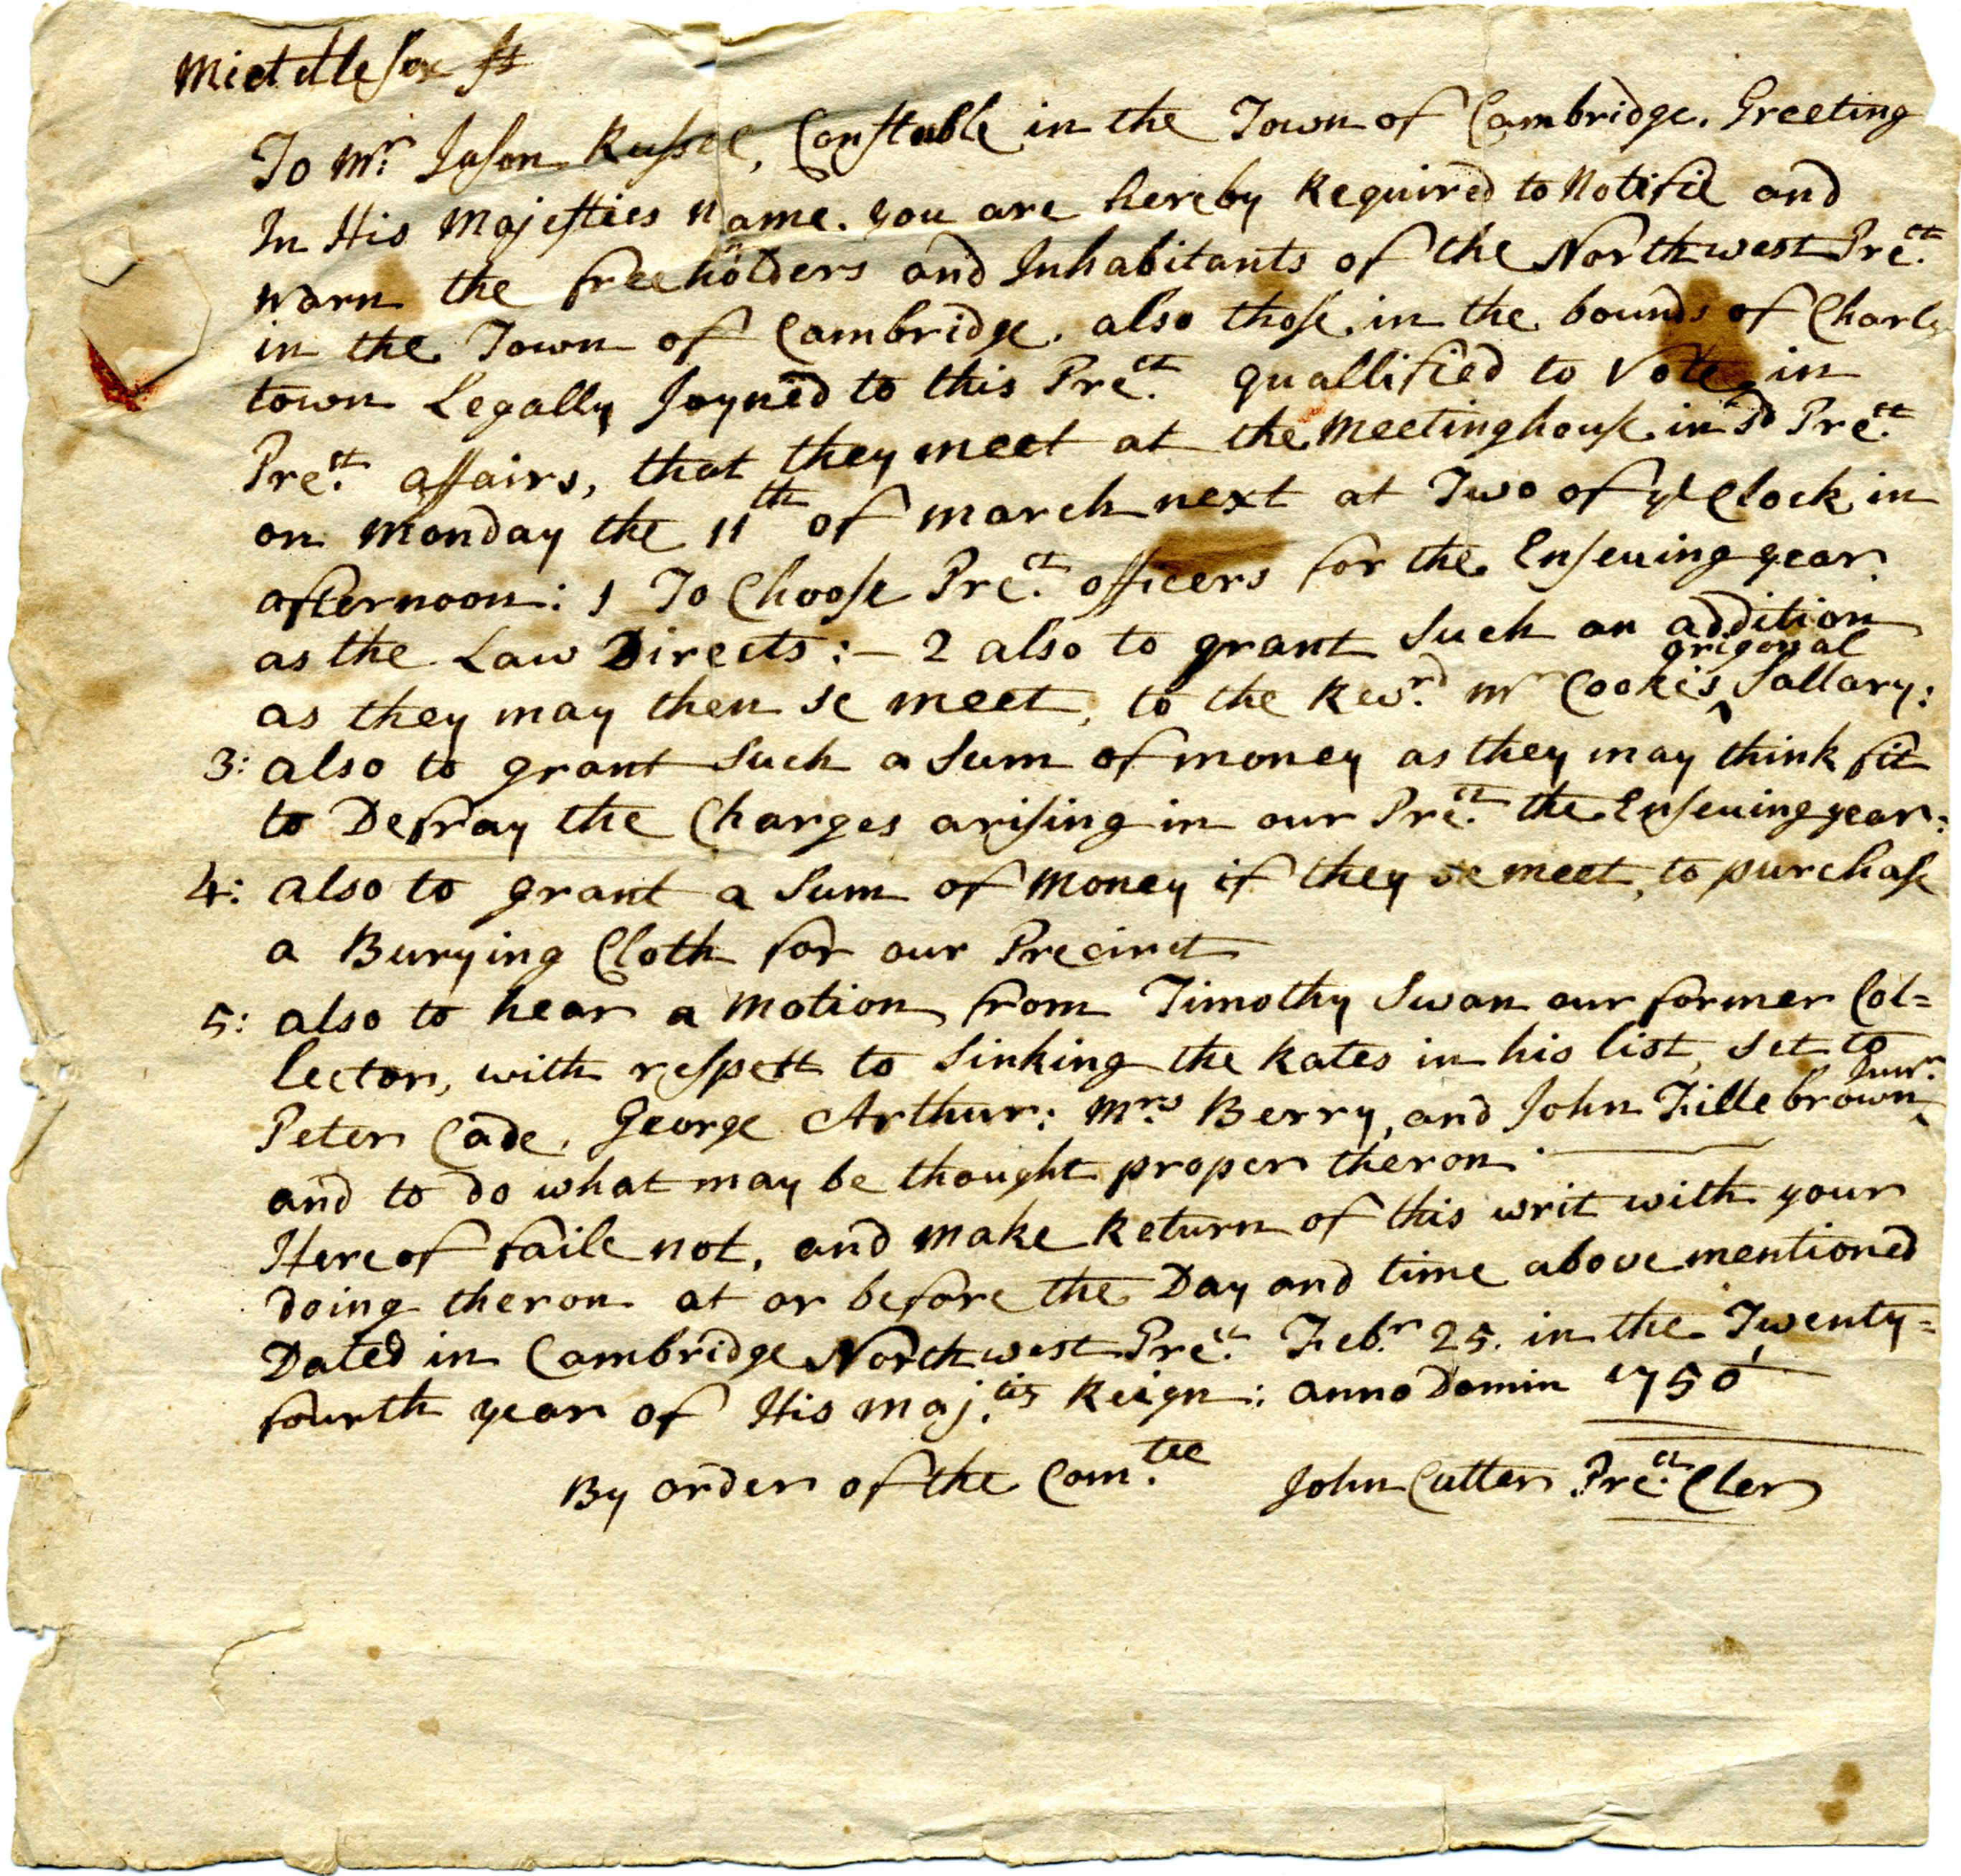 Middlesex ss
To Mr. Jason Russel, Constable in the Town of Cambridge. Greeting
In His Majesties Name. you are hereby Required to Notifie and
warn the freeholders and Inhabitants of the Northwest Prect.
in the Town of Cambridge. also those in the bounds of Charls
town Legally Joyned to this Prect. quallified to Vote in
Prect. affairs, that they meet at the meetinghouse in sd Prect.
on monday the 11th of march next at Two of ye Clock in
afternoon: 1 To Choose Prect. officers for the Enseuing year.
as the Law Directs:— 2 also to grant Such an addition
as they may then se meet, to the Revrd. mr Cooke's origonal Sallary:
3: also to grant Such a Sum of money as they may think fit
to Defray the Charges arising in our Prect. the Enseuing year:
4: also to grant a Sum of Money if they se meet, to purchase
a Burying Cloth for our Precinct
5: also to hear a motion from Timothy Swan our former Col=
lector, with respett to Sinking the Rates in his list, Set to
Peter Cade, George Arthur: Mrs. Berry, and John Fillebrown Junr.
and to do what may be thought proper theron.
Hereof faile not, and make Return of this writ with your
doing theron at or before the Day and time above mentioned
Dated in Cambridge Northwest Prect. Febr. 25. in the Twenty=
fourth year of His Maj.ties Reign: anno Domin 1750
By order of the Com.tee John Cutter Prect. Cler